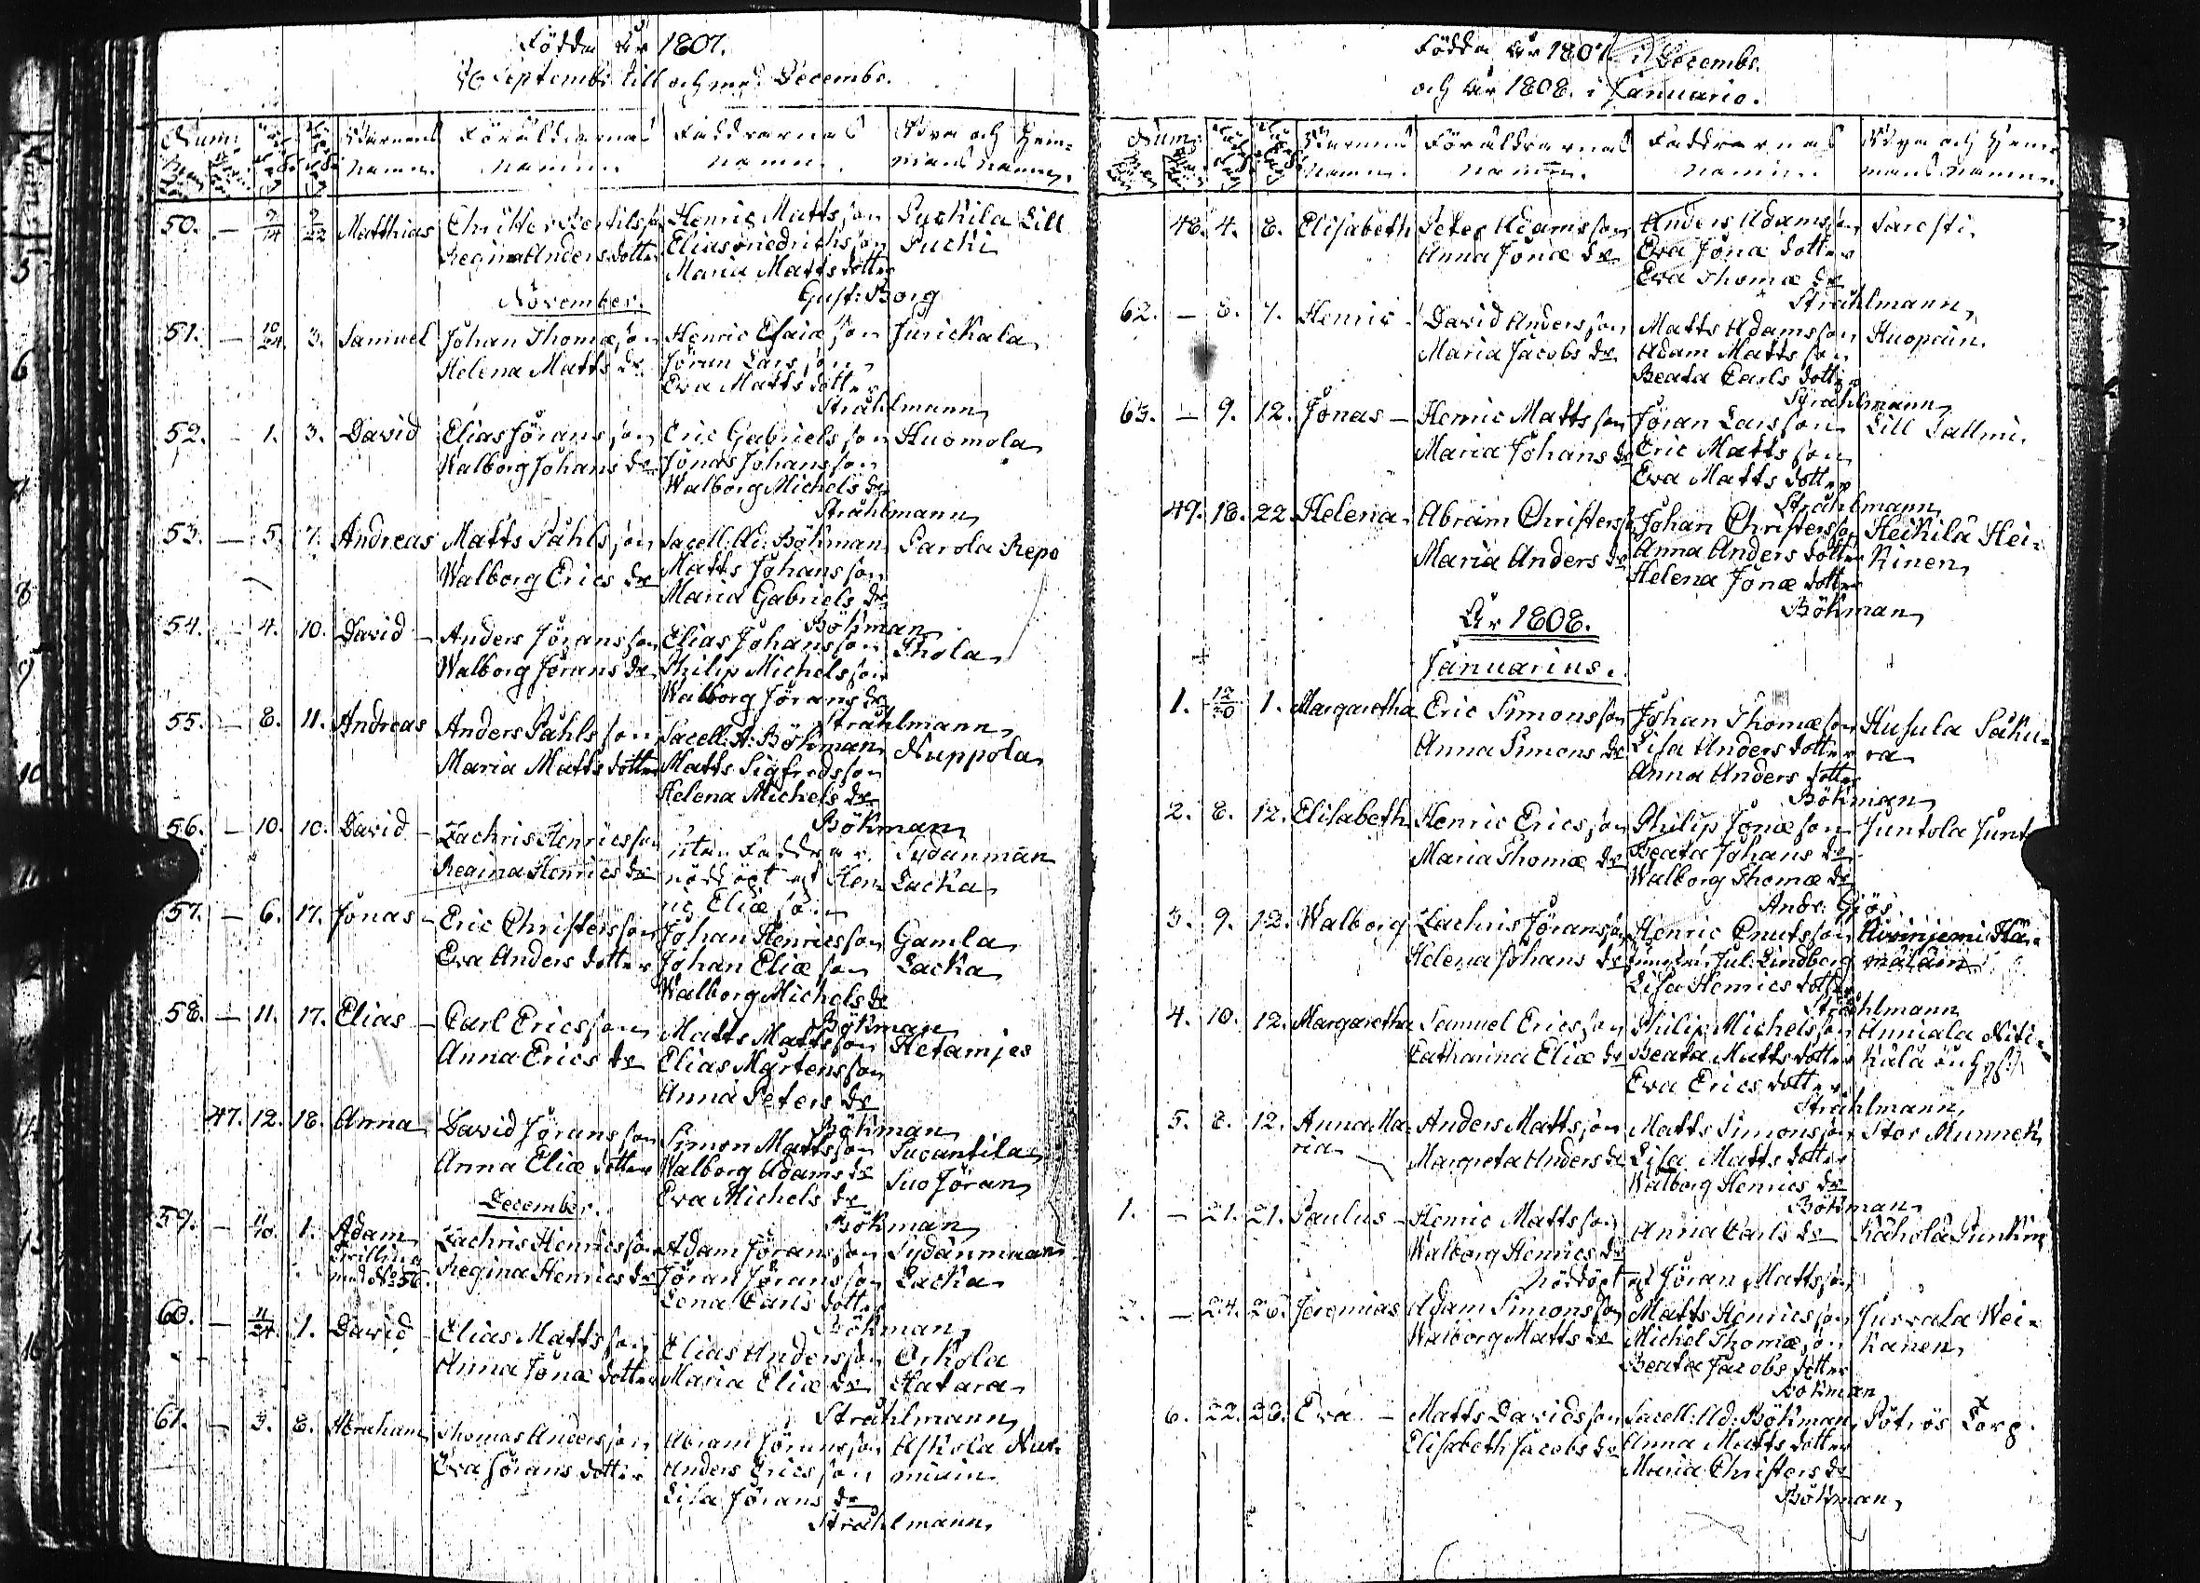 Födde År 1807.
September till och med Decembr.
Num:
Barnens namn.
Föräldrarnas namn.
Faddrarnas namn.
Bya och Hemmans namn.
50. — 9/14 9/22 Matthias Christer Bertilsson Henric Mattsson Pyhila Lill
Regina Andersdotter Elias Friedrichsson Pucki
Maria Matts dotter
November. Gust: Borg
51. — 10/24. 3. Samuel Johan Thomæson Henric Esaiæson Jurickala
Helena Matts dr Jöran Larsson
Eva Matts dotter
Stråhlmann
52. — 1. 3. David Elias Jöransson Eric Gabrielsson Huomola
Walborg Johans dr Jonas Johansson
Walborg Michels dr
Stråhlmann
53. — 5. 7. Andreas Matts Påhlsson Sacell: Ad: Böhman Parola Repo
Walborg Erics dr Matts Johansson
Maria Gabriels dr
Böhman
54. — 4. 10. David — Anders Jöransson Elias Johansson Ihola
Walborg Jörans dr Philip Michelsson
Walborg Jörans dr
Stråhlmann
55. — 8. 11. Andreas Anders Påhlsson Sacell: A: Böhman Nuppola
Maria Matts dotter Matts Sigfredsson
Helena Michels dr
Böhman
56. — 10. 10. David — Zachris Henricsson utan Faddrar Sydänmän
Regina Henrics dr nöddöpt af Hen- Lacka
ric Eliæson
57. — 6. 17. Jonas — Eric Christersson Johan Henricsson Gamla
Eva Anders dotter Johan Eliæson Lacka
Walborg Michels dr
Böhman
58. — 11. 17. Elias — Carl Ericsson Matts Mattsson Hetamies
Anna Erics dr Elias Mårtensson
Anna Peters dr
Böhman
47. 12. 18. Anna David Jöransson Simon Mattsson
Anna Eliæ dotter Walborg Adams dr Suo Jöran
Eva Michels dr
December. Böhman
59. — 11/10. 1. Adam Zachris Henricsson Adam Jöransson Sydänmaan
Trilling med No 56. Regina Henrics dr Jöran Jöransson Lacka
Lena Carls dotter
Böhman
60. — 11/24. 1. David — Elias Mattsson Elias Andersson Orkola
Anna Jonæ dotter Maria Eliæ dr Hatara
Stråhlmann
61. — 3. 8. Abraham Thomas Andersson Abram Jöransson Askola
Eva Jörans dotter Anders Ericsson
Lisa Jörans dr
Stråhlmann
Födde År 1807 i Decembr.
och År 1808. i Januario.
Num:
Barnens namn.
Föräldrarnas namn.
Faddrarnas namn.
Bya och Hemmans namn.
48. 4. 8. Elisabeth Peter Adamsson Anders Adamsson Paresti
Anna Jonæ dr Eva Jonæ dotter
Eva Thomæ dr
Stråhlmann
62. — 3. 7. Henric David Andersson Matts Adamsson Huopain
Maria Jacobs dr Adam Mattsson
Beata Carls dotter
Stråhlmann
63. — 9. 12. Jonas — Henric Mattsson Jöran Larsson Lill Tallmi
Maria Johans dr Eric Mattsson
Eva Matts dotter
Stråhlmann
49. 18. 22. Helena Abram Christersson Johan Christersson Heikilä Hei-
Maria Anders dr Anna Anders dotter kinen
Helena Jonæ dotter
Böhman
År 1808.
Januarius.
1. 12/20 1. Margaretha Eric Simonsson Johan Thomæson Husula Saku-
Anna Simons dr Lisa Anders dotter ra
Anna Anders dotter
Böhman
2. 8. 12. Elisabeth Henric Ericsson Philip Jonæson Juntola Junt
Maria Thomæ dr Beata Johans dr
Walborg Thomæ dr
Andr: Gjös
3. 9. 12. Walborg Zachris Jöransson Henric Cnutsson
Helena Johans dr Jungfru Jul: Lindberg
Lisa Henrics dotter
Stråhlmann
4. 10. 12. Margaretha Samuel Ericsson Philip Michelsson Anniala Niti-
Catharina Eliæ dr Beata Matts dotter kala
Eva Erics dotter
Stråhlmann
5. 8. 12. Anna Ma- Anders Mattsson Matts Simonsson Stor Munnek
ria Margreta Anders dr Lisa Matts dotter
Walborg Henrics dr
Böhman
1. — 21. 21. Paulus — Henric Mattsson Anna Carls dr Kähölä Punkin
Walborg Henrics dr
Nöddöpt af Jöran Mattsson
2. — 24. 26. Jeremias Adam Simonsson Matts Henricsson Jurvala Wei-
Walborg Matts dr Michel Thomæson kanen
Beata Jacobs dotter
Böhman
6. 22. 26. Eva — Matts Davidsson Sacell: Ad: Böhman Pötrös Torp
Elisabeth Jacobs dr Anna Matts dotter
Maria Christers dr
Böhman